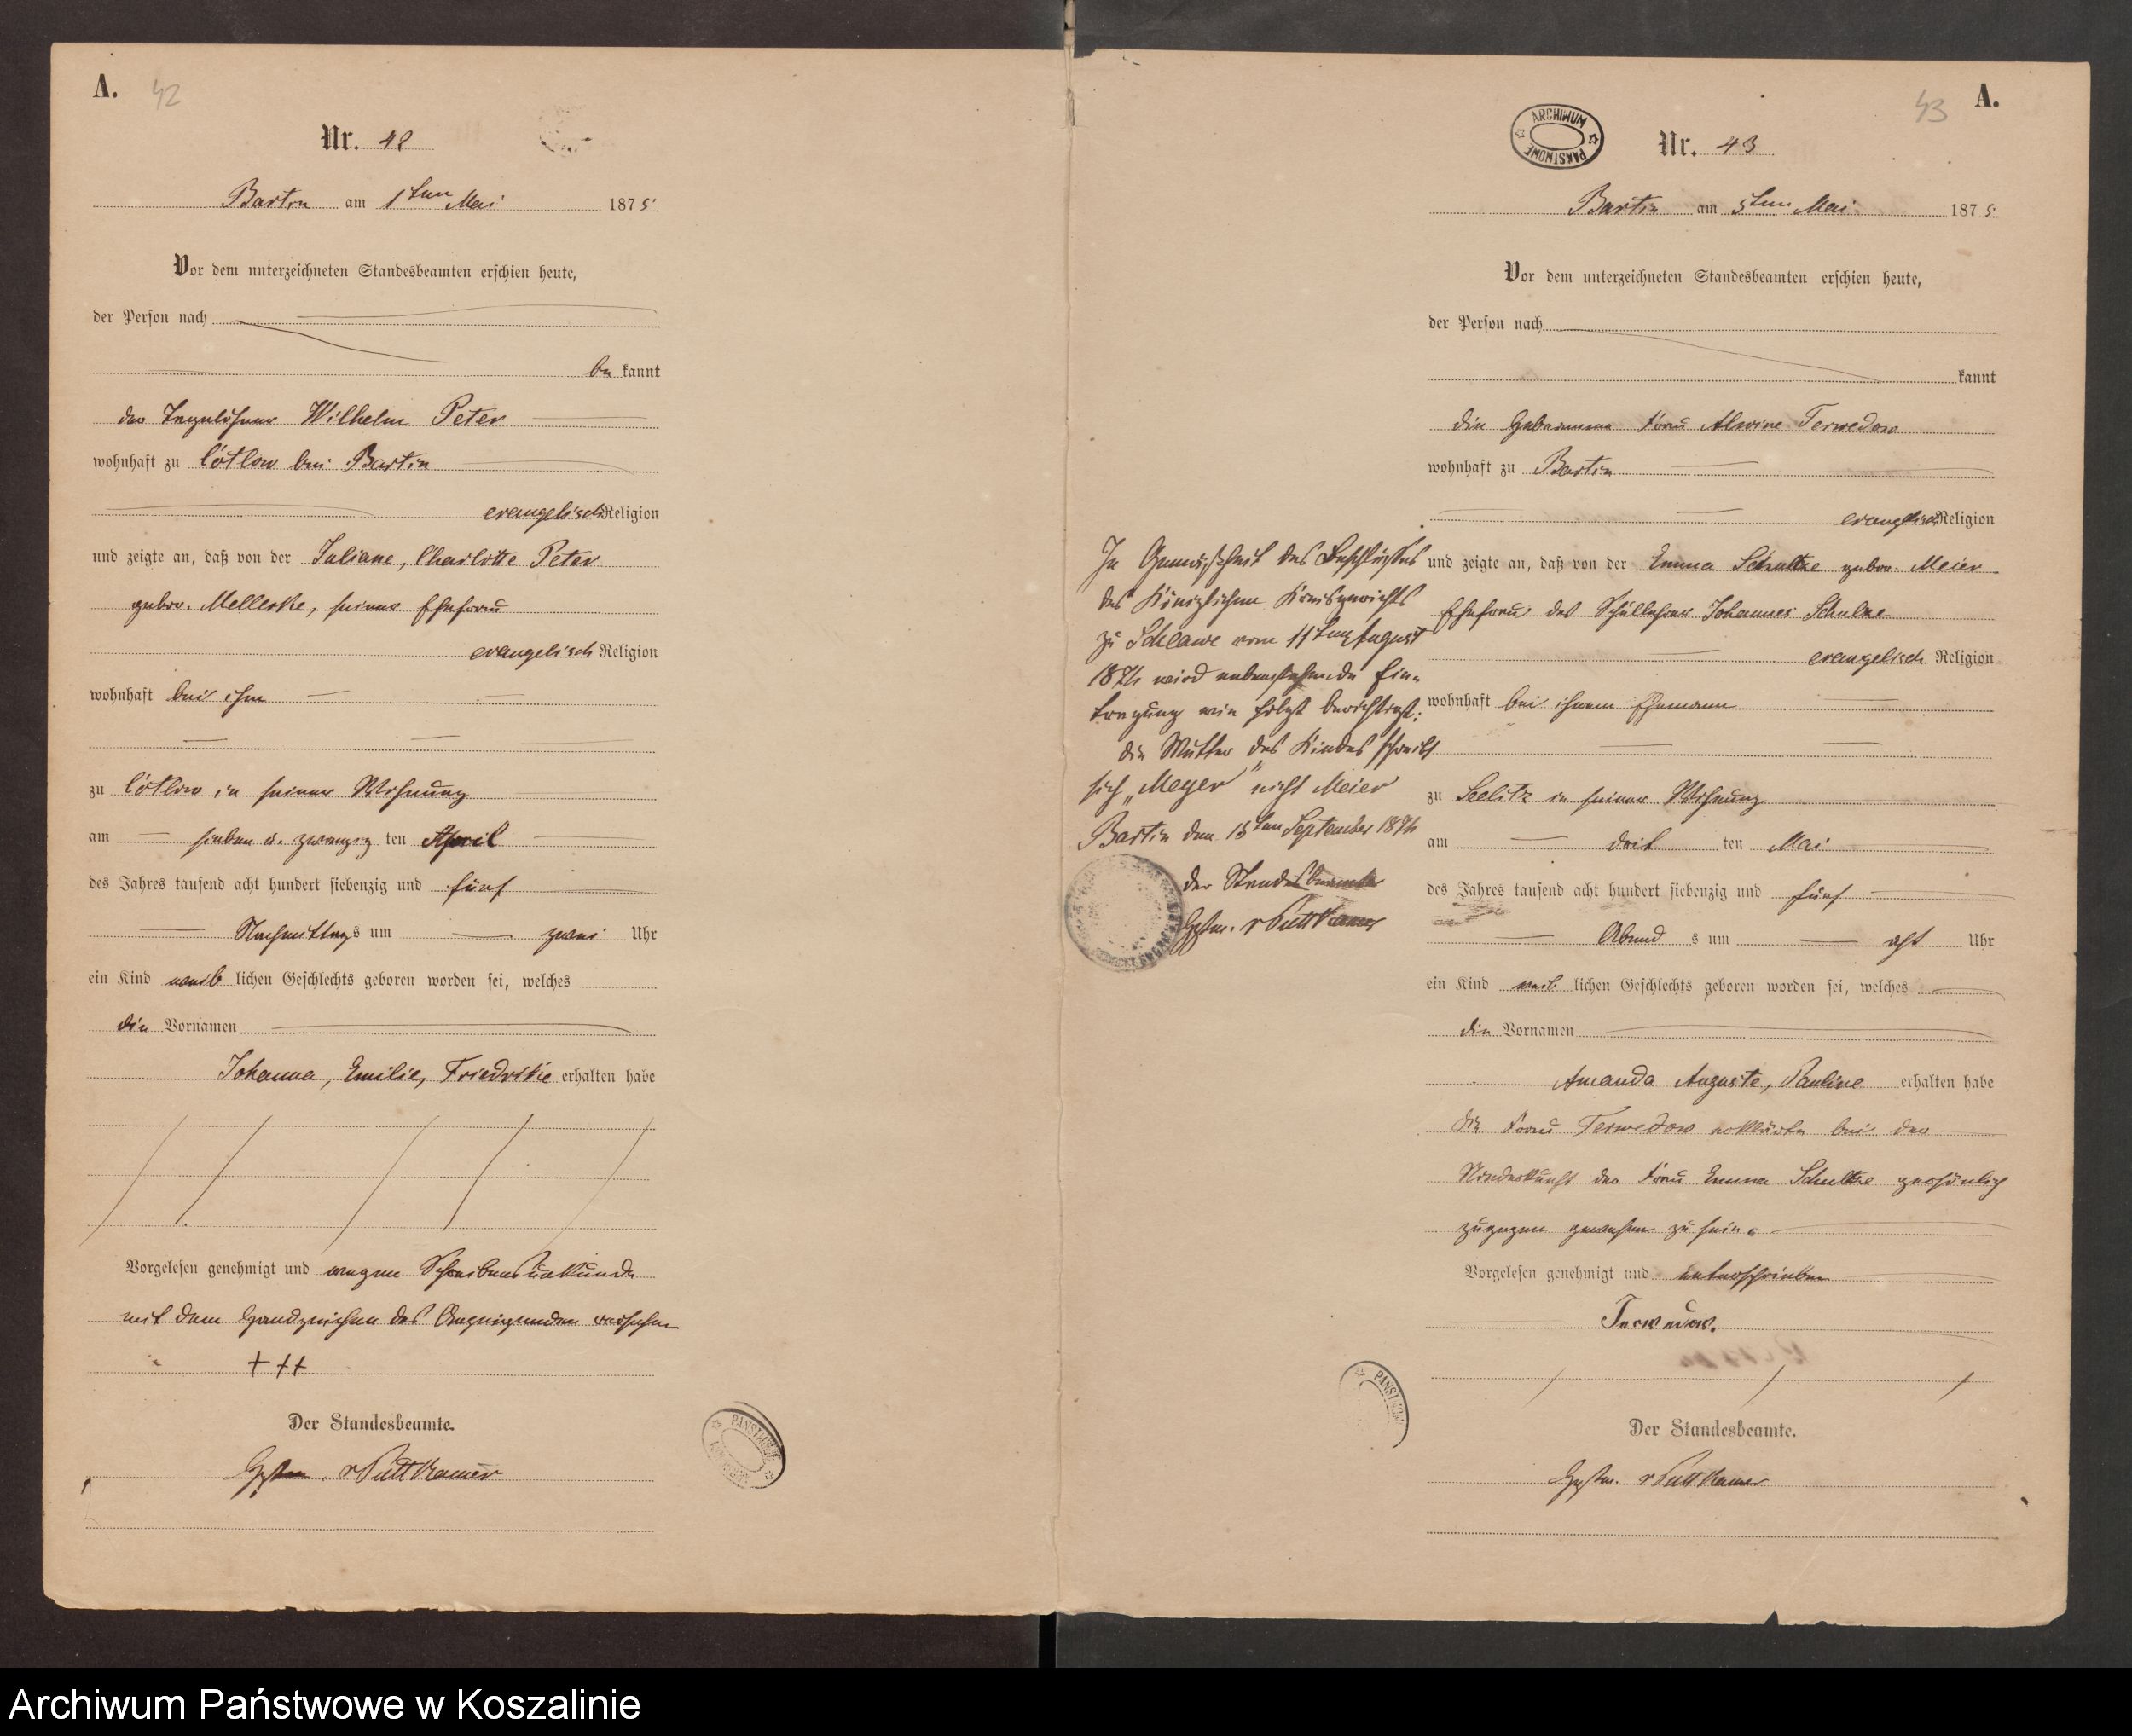 A.
42
Nr. 42
Bartin am 1ten Mai 1875.
Vor dem unterzeichneten Standesbeamten erschien heute,
der Person nach
be kannt
der Wilhelm Peter
wohnhaft zu Cötlow bei Bartin
evangelisch Religion
und zeigte an, daß von der Juliane, Charlotte Peter
gebor. Melleske, seiner Ehefrau
evangelisch Religion
wohnhaft bei ihm
zu Cötlow in seiner Wohnung
am sieben u. zwanzig ten April
des Jahres tausend acht hundert siebenzig und fünf
Nachmittags um zwei Uhr
ein Kind weib lichen Geschlechts geboren worden sei, welches
die Vornamen
Johanna, Emilie, Friedrikie erhalten habe
Vorgelesen genehmigt und wegen Schreibensunkunde
mit dem Handzeichen des Anzeigenden versehen
+++
Der Standesbeamte.
vPuttkamer
PAŃSTWOWE
ARCHIWUM PAŃSTWOWE
A.
43
Nr. 43
Bartin am 5ten Mai 1875.
Vor dem unterzeichneten Standesbeamten erschien heute,
der Person nach
kannt
die Hebamme Frau Alwine Terwedow
wohnhaft zu Bartin
evangelisch Religion
und zeigte an, daß von der Emma Schultze gebor. Meier
Ehefrau des Schullehrer Johannes Schulze
evangelisch Religion
wohnhaft bei ihrem Ehemann
zu Seelitz in seiner Wohnung
am drit ten Mai
des Jahres tausend acht hundert siebenzig und fünf
Abend s um acht Uhr
ein Kind weib lichen Geschlechts geboren worden sei, welches
die Vornamen
Amanda Auguste, Pauline erhalten habe
die Frau Terwedow erklärte bei der
Niederkunft der Frau Emma Schultze persönlich
zugegen gewesen zu sein.
Vorgelesen genehmigt und unterschrieben
Terwedow.
Der Standesbeamte.
vPuttkamer
In Gemäßheit des Beschlusses
des Königlichen Kreisgerichts
zu Schlawe vom 11ten August
187 wird nebenstehende Ein-
tragung wie folgt berichtigt:
die Mutter des Kindes schreibt
sich „Meyer" nicht Meier
Bartin den 15ten September 187
der Standesbeamte
vPuttkamer
PAŃSTWOWE
Archiwum Państwowe w Koszalinie